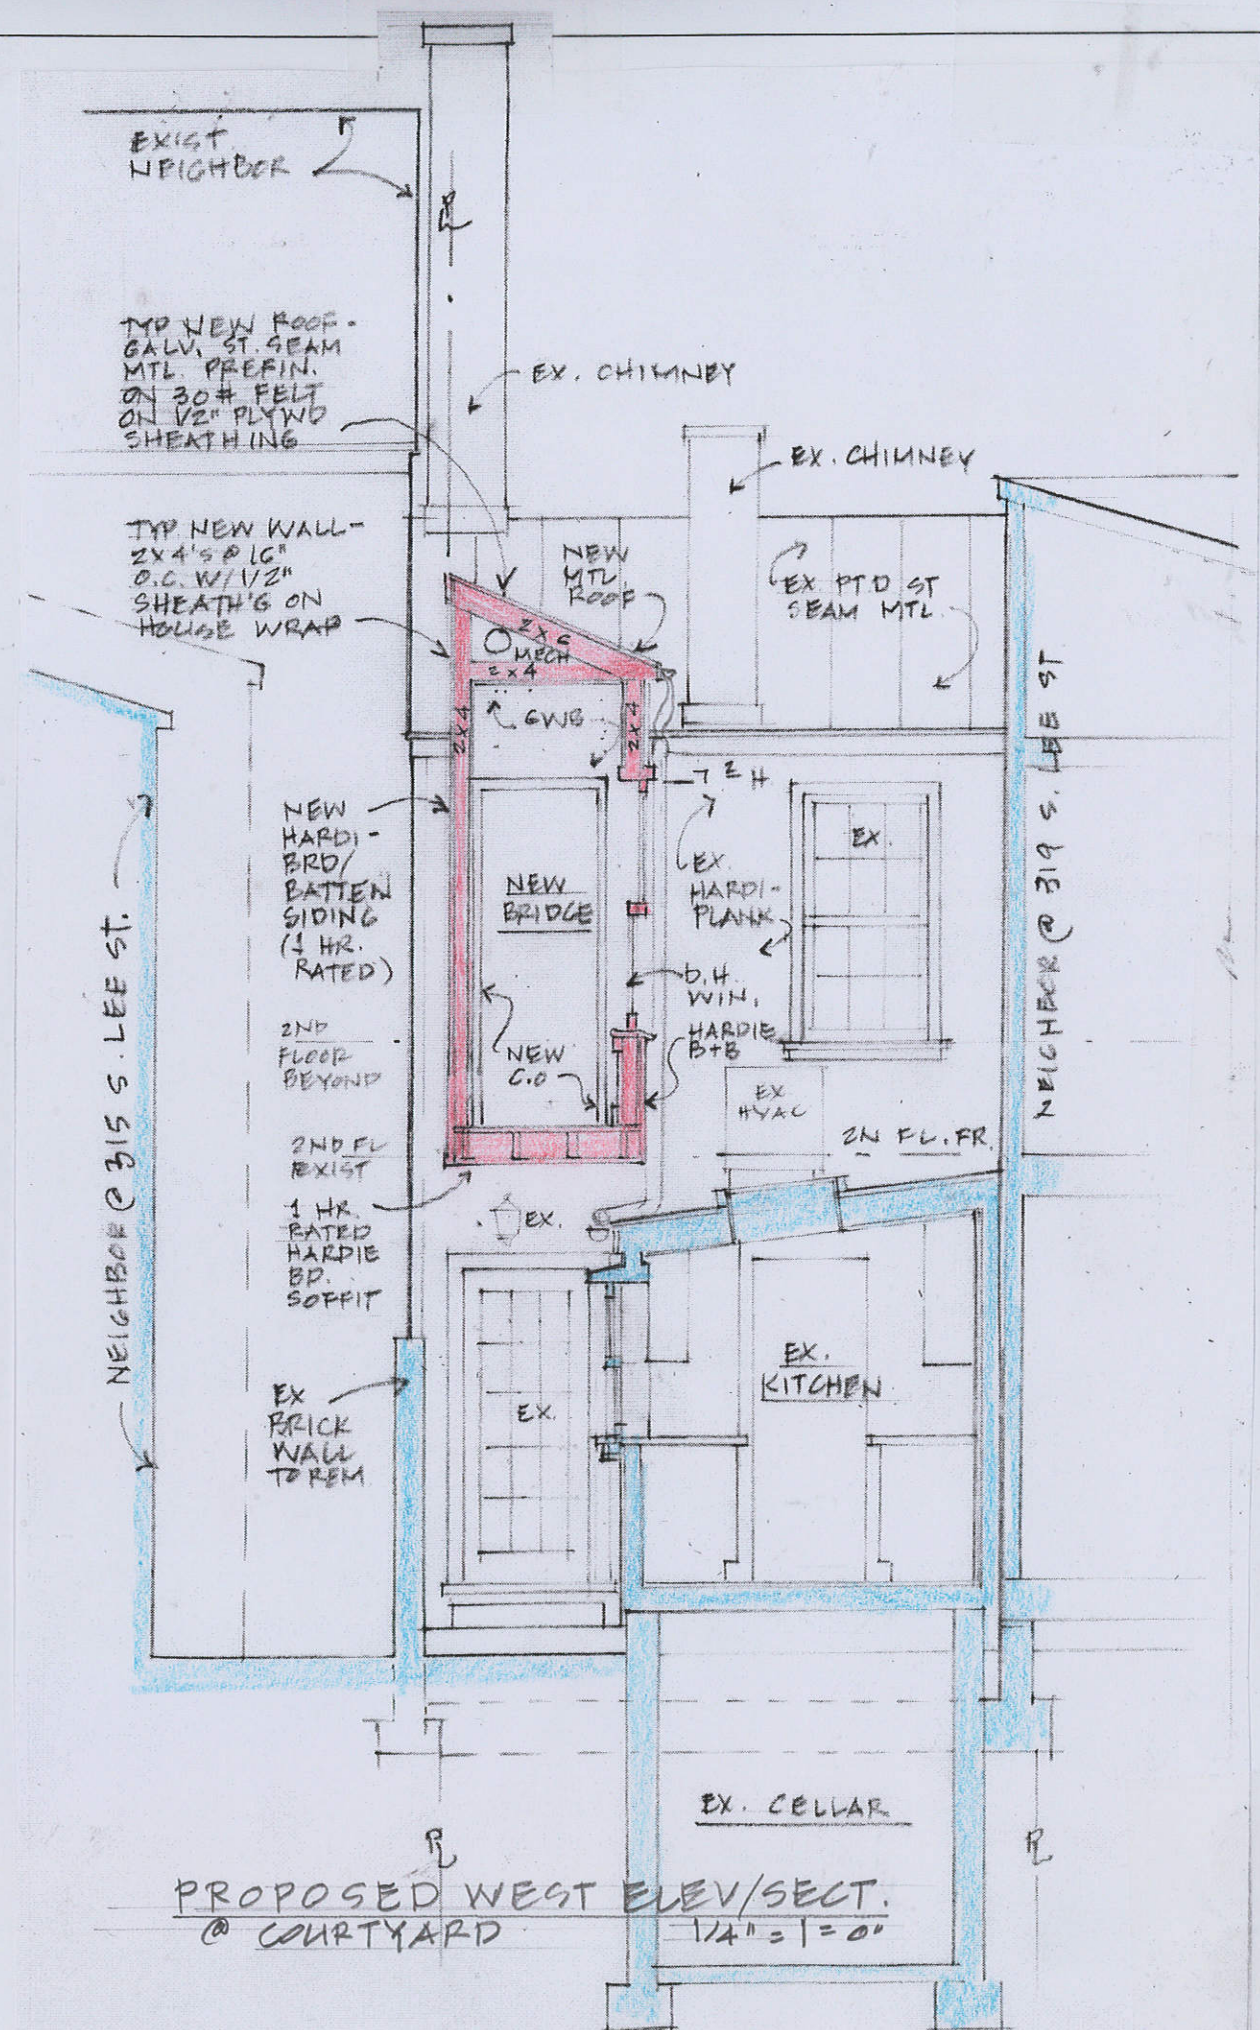 EXIST
NEIGHBOR
PL
TYP NEW ROOF-
GALV. ST. SEAM
MTL. PREFIN.
ON 30# FELT
ON 1/2" PLYWD
SHEATHING
EX. CHIMNEY
EX. CHIMNEY
TYP NEW WALL-
2X4'S @ 16"
O.C. W/ 1/2"
SHEATH'G ON
HOUSE WRAP
NEW
MTL
ROOF
EX PT'D ST
SEAM MTL.
2X6
MECH
2X4
GWB
2X4
2X4
7 2 H
NEW
HARDI-
BRD/
BATTEN
SIDING
(1 HR.
RATED)
NEW
BRIDGE
EX.
HARDI-
PLANK
EX.
D.H.
WIN.
HARDIE
B+B
NEW
C.O
2ND
FLOOR
BEYOND
EX
HVAC
2N FL. FR.
2ND FL
EXIST
1 HR.
RATED
HARDIE
BD.
SOFFIT
EX.
NEIGHBOR @ 315 S. LEE ST.
NEIGHBOR @ 319 S. LEE ST
EX
BRICK
WALL
TO REM
EX.
EX.
KITCHEN
EX. CELLAR
PL
PL
PROPOSED WEST ELEV/SECT.
@ COURTYARD 1/4" = 1'=0"